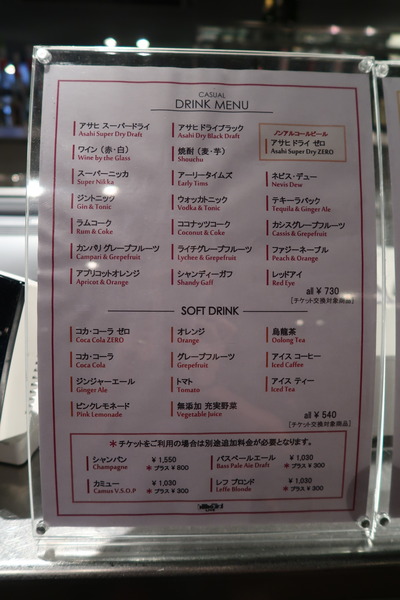 CASUAL
DRINK MENU
アサヒ スーパードライ
Asahi Super Dry Draft
アサヒ ドライブラック
Asahi Dry Black Draft
ノンアルコールビール
アサヒ ドライ ゼロ
Asahi Super Dry ZERO
ワイン (赤・白)
Wine by the Glass
焼酎 (麦・芋)
Shouchu
スーパーニッカ
Super Nikka
アーリータイムズ
Early Tims
ネビス・デュー
Nevis Dew
ジントニック
Gin & Tonic
ウォッカトニック
Vodka & Tonic
テキーラバック
Tequila & Ginger Ale
ラムコーク
Rum & Coke
ココナッツコーク
Coconut & Coke
カシスグレープフルーツ
Cassis & Grepefruit
カンパリ グレープフルーツ
Campari & Grepefruit
ライチグレープフルーツ
Lychee & Grepefruit
ファジーネーブル
Peach & Orange
アプリコットオレンジ
Apricot & Orange
シャンディーガフ
Shandy Gaff
レッドアイ
Red Eye
all ¥ 730
[チケット交換対象商品]
SOFT DRINK
コカ・コーラ ゼロ
Coca Cola ZERO
オレンジ
Orange
烏龍茶
Oolong Tea
コカ・コーラ
Coca Cola
グレープフルーツ
Grepefruit
アイス コーヒー
Iced Caffee
ジンジャーエール
Ginger Ale
トマト
Tomato
アイス ティー
Iced Tea
ピンクレモネード
Pink Lemonade
無添加 充実野菜
Vegetable Juice
all ¥ 540
[チケット交換対象商品]
＊チケットをご利用の場合は別途追加料金が必要となります。
シャンパン ¥ 1,550
Champagne ＊プラス ¥ 800
バスペールエール ¥ 1,030
Bass Pale Ale Draft ＊プラス ¥ 300
カミュー ¥ 1,030
Camus V.S.O.P ＊プラス ¥ 300
レフ ブロンド ¥ 1,030
Leffe Blonde ＊プラス ¥ 300